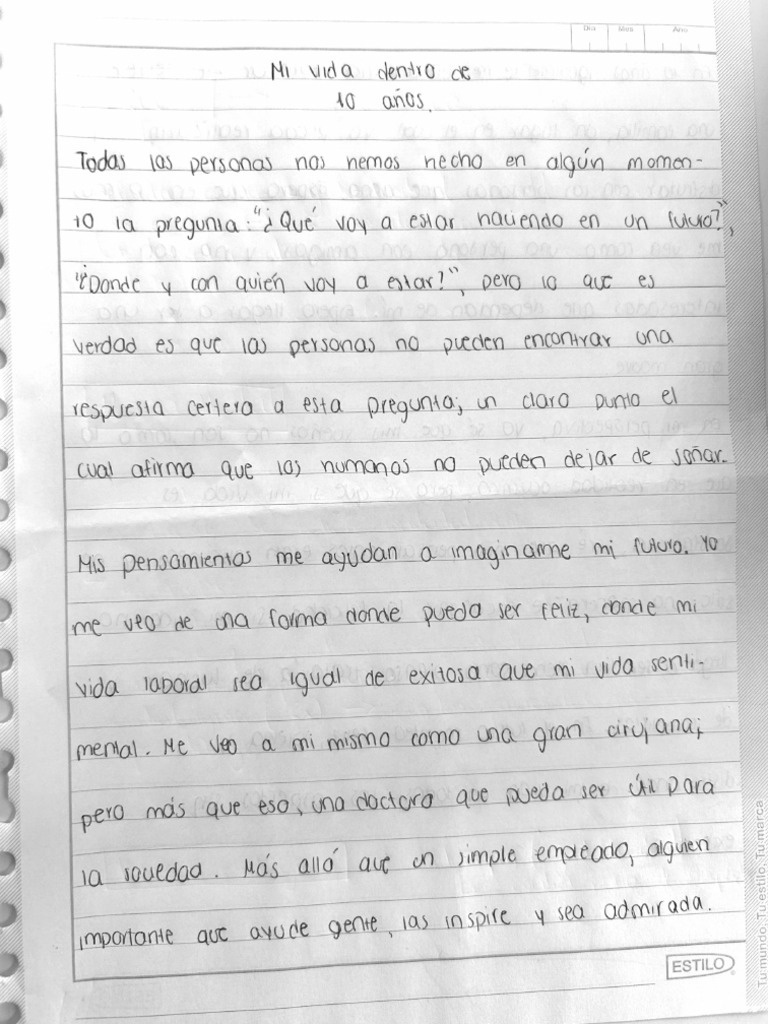 Dia Mes Año
Mi vida dentro de
10 años.
Todas las personas nos hemos hecho en algún momen-
to la pregunta: "¿Qué voy a estar haciendo en un futuro?",
"¿Donde y con quién voy a estar?", pero lo que es
verdad es que las personas no pueden encontrar una
respuesta certera a esta pregunta; un claro punto el
cual afirma que los humanos no pueden dejar de soñar.
Mis pensamientos me ayudan a imaginame mi futuro. Yo
me veo de una forma donde pueda ser feliz, donde mi
vida laboral sea igual de exitosa que mi vida senti-
mental. Me veo a mi mismo como una gran cirujana;
pero más que eso, una doctora que pueda ser útil para
la sociedad. Más allá que un simple empleado, alguien
importante que ayude gente, las inspire y sea admirada.
ESTILO
Tu mundo. Tu estilo. Tu marca